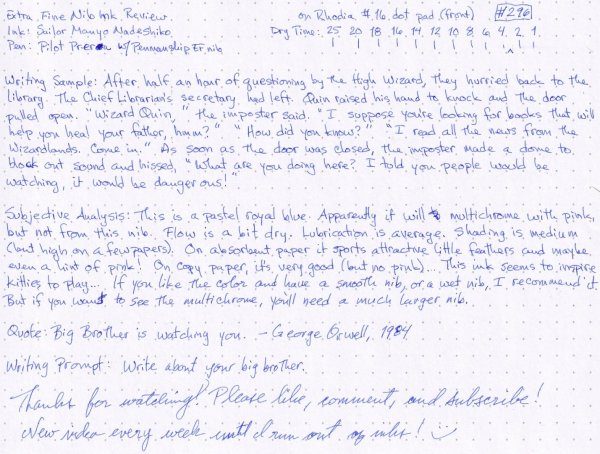 Extra Fine Nib Ink Review on Rhodia #16 dot pad (front) #296
Ink: Sailor Manyo Nadeshiko Dry Time: 25 20 18 16 14 12 10 8 6 4 2 1
Pen: Pilot Prera w/Penmanship EF nib
Writing Sample: After half an hour of questioning by the High Wizard, they hurried back to the
library. The Chief Librarian's secretary had left. Quin raised his hand to knock and the door
pulled open. "Wizard Quin," the imposter said. "I suppose you're looking for books that will
help you heal your father, hmm?" "How did you know?" "I read all the news from the
Wizardlands. Come in." As soon as the door was closed, the imposter made a dome to
block out sound and hissed, "What are you doing here? I told you people would be
watching, it would be dangerous!"
Subjective Analysis: This is a pastel royal blue. Apparently it will multichrome with pink,
but not from this nib. Flow is a bit dry. Lubrication is average. Shading is medium
(but high on a few papers). On absorbent paper it sports attractive little feathers and maybe
even a hint of pink! On copy paper, it's very good (but no pink)... This ink seems to inspire
kitties to play... If you like the color and have a smooth nib, or a wet nib, I recommend it.
But if you want to see the multichrome, you'll need a much larger nib.
Quote: Big Brother is watching you. - George Orwell, 1984
Writing Prompt: Write about your big brother.
Thanks for watching! Please like, comment, and subscribe!
New video every week until I run out of inks!